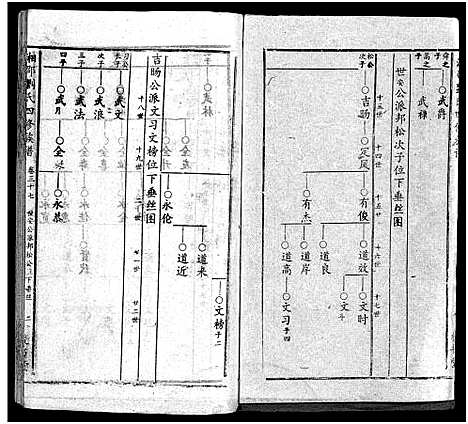 舜之子
武爵
高之子
武祿
世安公派邦松次子位下垂丝图
十三世
十四世
十五世
十六世
十七世
松公次子
吉旸
定凤
有俊
道效
文时
文斗
道良
有杰
道岸
道高
文习 子四
吉旸公派文习文榜位下垂丝图
十八世
十九世
二十世
廿一世
廿二世
文榜 子二
道来
道近
永伦
习公长子
武文
次子
武浪
三子
武法
四子
武月
全
永恭
四修族谱
卷三十七
世安公派邦松公位下垂丝
二